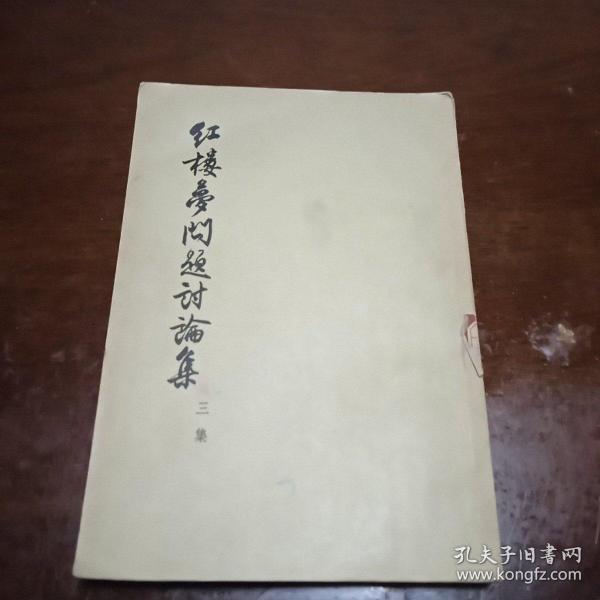 红楼夢问题討論集
三集
孔夫子旧書网
www.kongfz.com